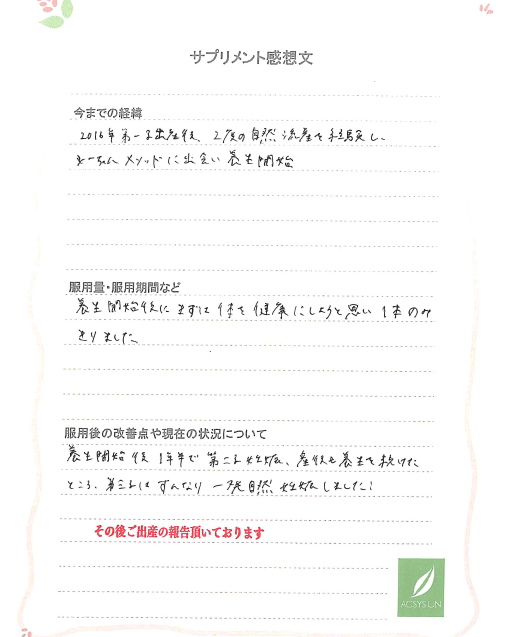 サプリメント感想文
今までの経緯
2016年第一子出産後、2度の自然流産を経験し、
メソッドに出会い養生開始
服用量・服用期間など
養生開始後にまずは体を健康にしようと思い1本のみ
走りました
服用後の改善点や現在の状況について
養生開始後1年半で第二子妊娠、産後も養生を続けた
ところ、第三子はすんなり一発自然妊娠しました!
その後ご出産の報告頂いております
ACSYS LIN